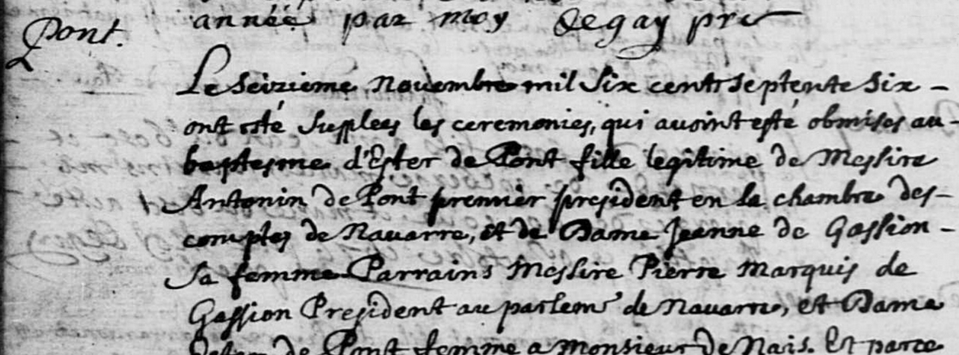 année par moy Degay pre
Pont.
Le seizieme novembre mil six cent septente six -
ont esté supplees les ceremonies, qui avoint esté obmises au-
baptesme d'Ester de Pont fille legitime de Messire
Antonin de Pont premier president en la chambre des-
comptes de Navarre, et de Dame Jeanne de Gassion -
sa femme Parrains Messire Pierre Marquis de
Gassion President au parlem^t de Navarre, et Dame
Ester de Pont femme a monsieur de Nais. Et parce